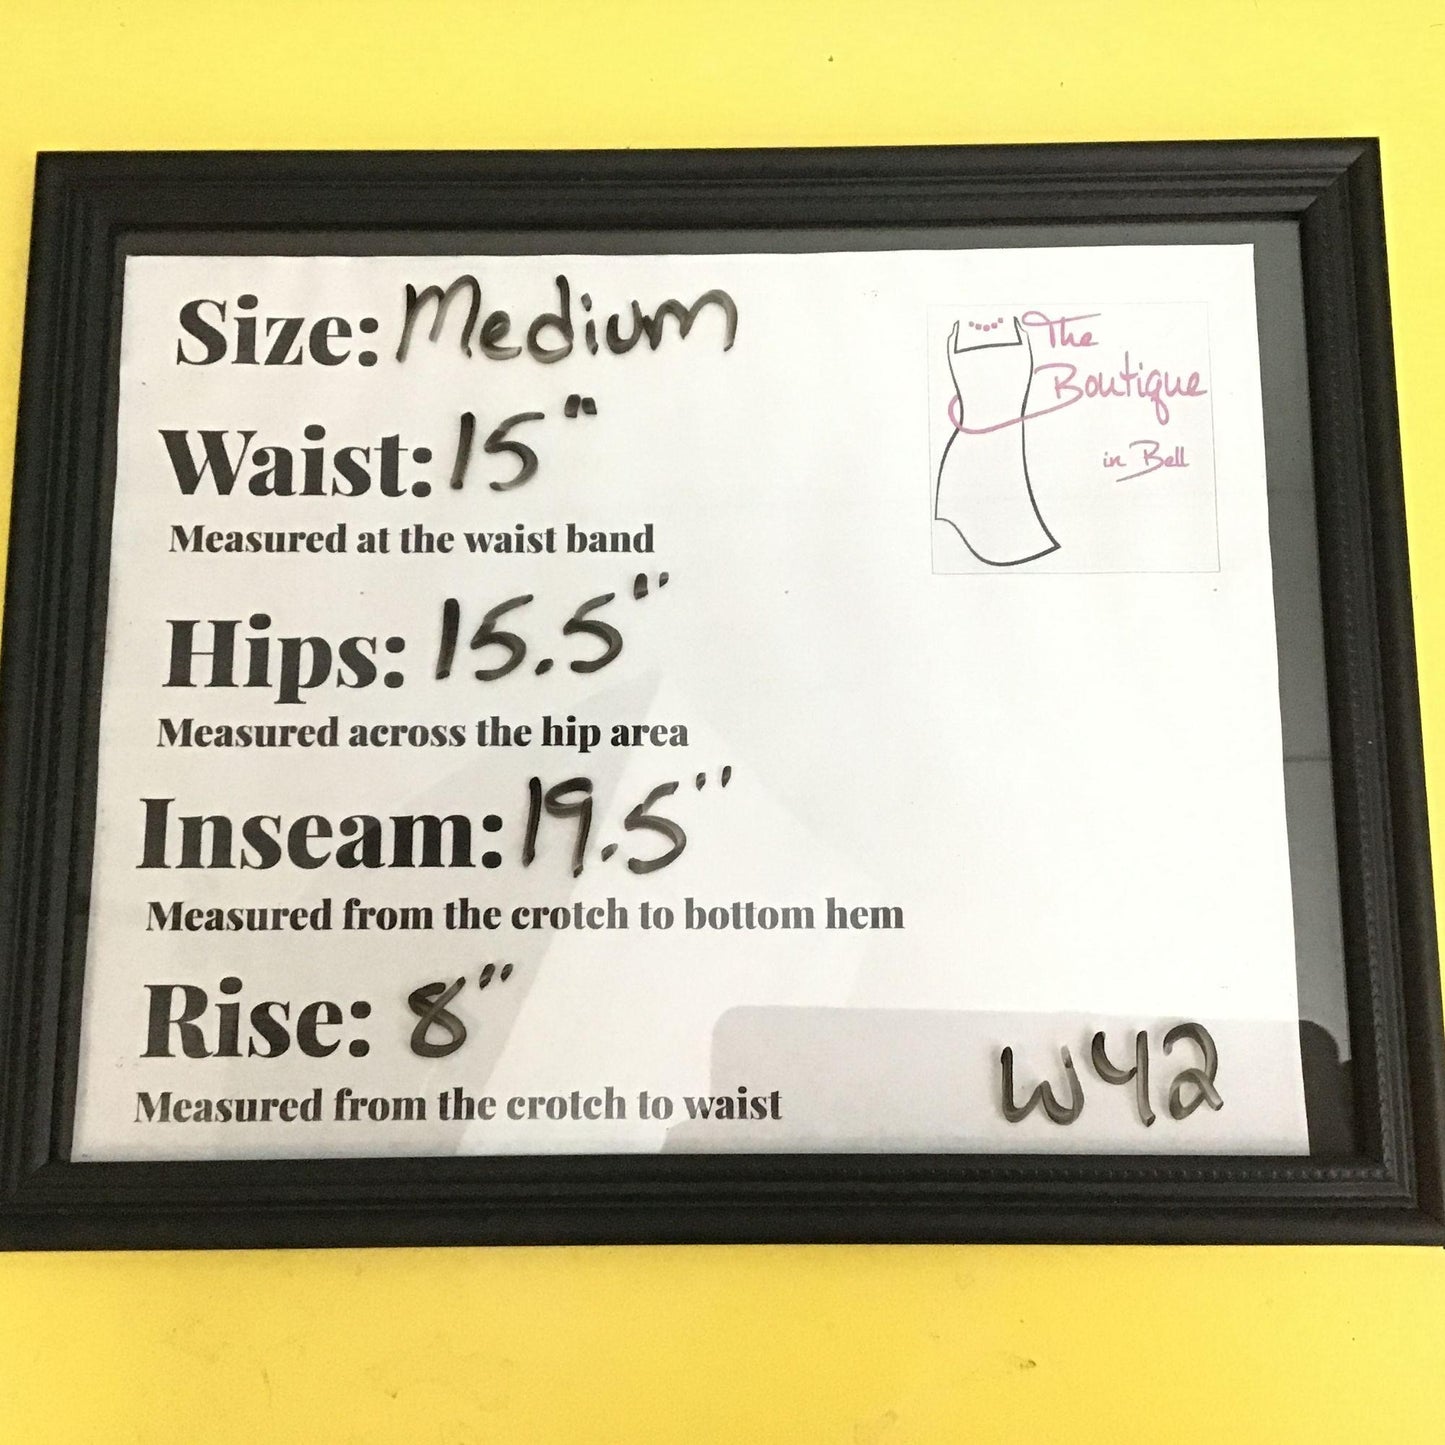 Size: Medium
Waist: 15"
Measured at the waist band
Hips: 15.5"
Measured across the hip area
Inseam: 19.5"
Measured from the crotch to bottom hem
Rise: 8"
Measured from the crotch to waist
The
Boutique
in Bell
W42